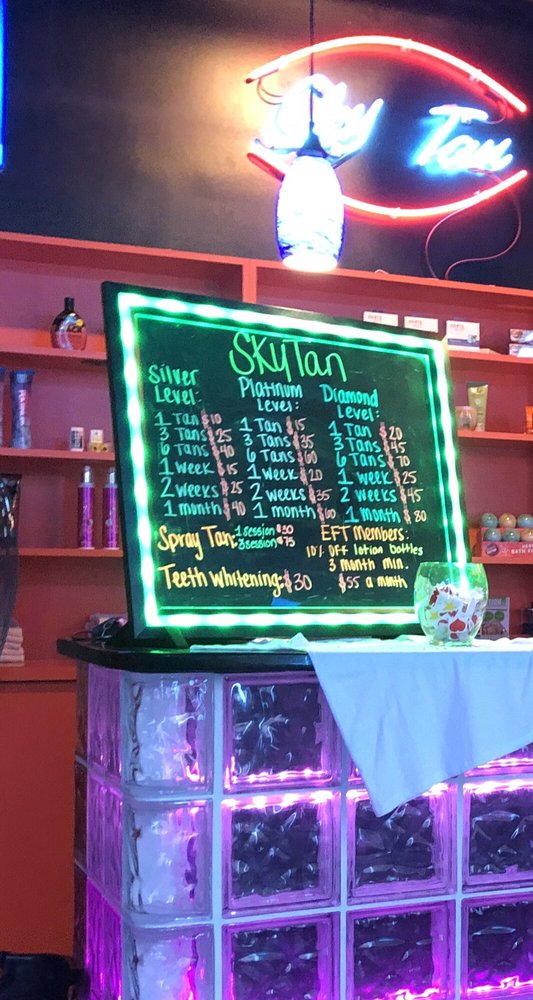 Sky Tan
SKYTAN
Silver Level:
1 Tan $10
3 Tans $25
6 Tans $40
1 week $15
2 weeks $25
1 month $40
Platinum Level:
1 Tan $15
3 Tans $35
6 Tans $60
1 week $20
2 weeks $35
1 month $60
Diamond Level:
1 Tan $20
3 Tans $45
6 Tans $70
1 week $25
2 weeks $45
1 month $80
Spray Tan: 1 session $30
3 session $75
Teeth Whitening: $30
EFT Members:
10% Off lotion bottles
3 month min.
$55 a month